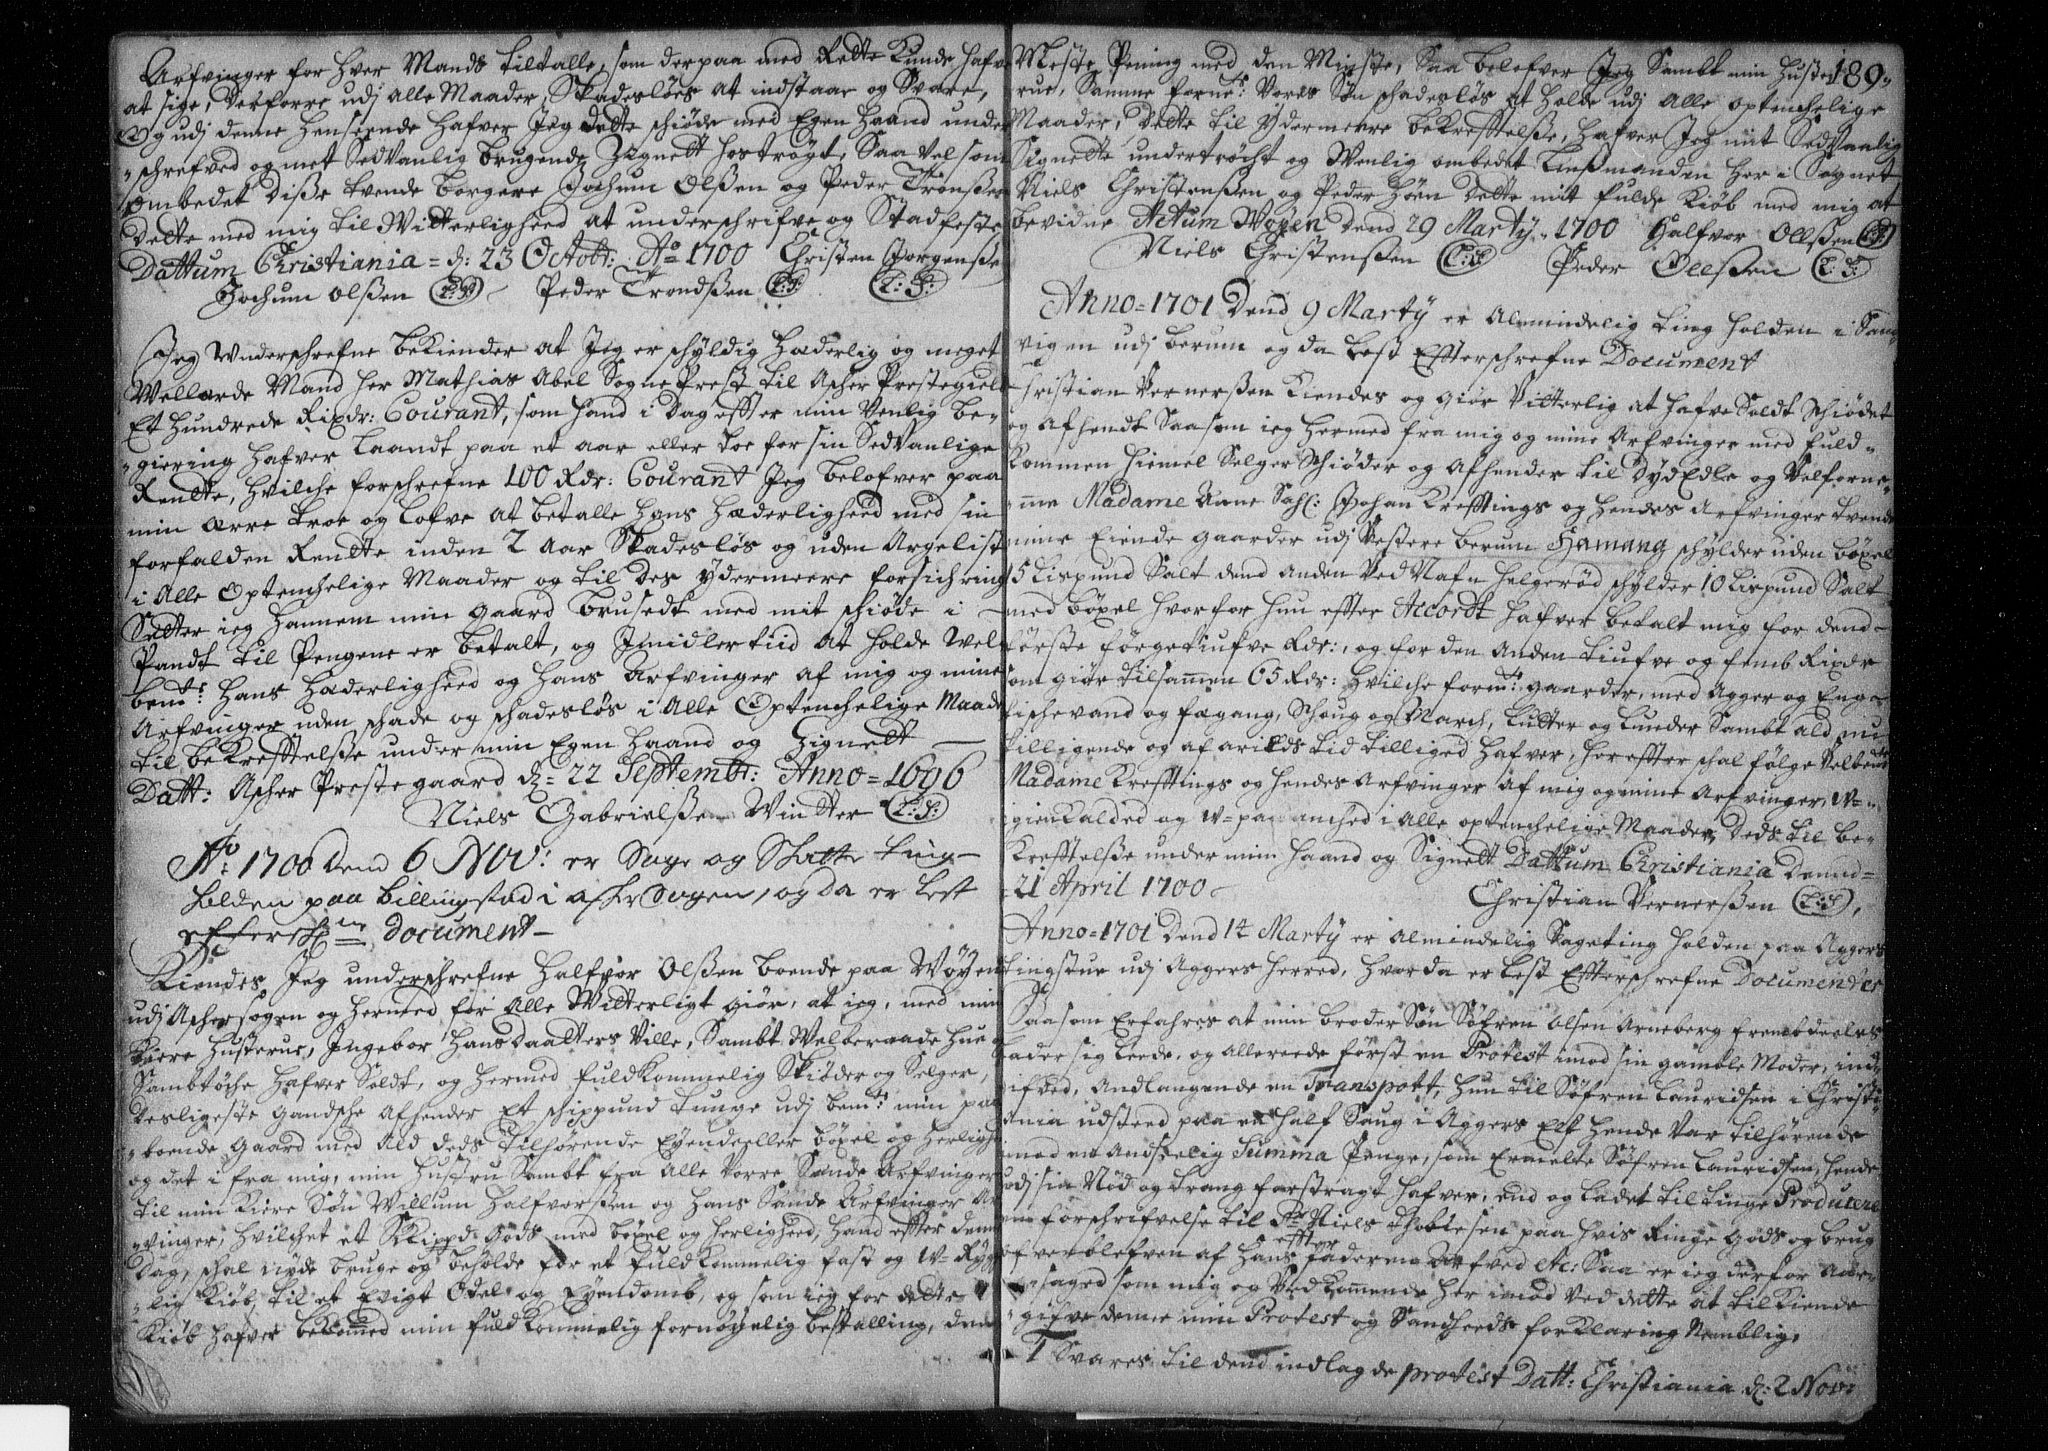 Arfvinger for hver Mands tiltalle, som derpaa med Rette kunde hafve
at sige, derforre udj alle Maader, Skadesløes at indstaae og Svare,
Og udj denne henseende hafver Jeg dette schiøde med Egen haand under
schrefved og met Sedvanlig brugende Zignett hostrøgt, Saa vel som
ombedet diße tvende borgere Jochum Olßen og Peder Tronßen
dette med mig til Vitterligheed at underschrifve og Stadfeste
Dattum Christiania = d: 23 Octobr: Ao 1700 Christen Jørgenße
Jochum olßen (L:S:) Peder Trondßen (L:S:) (L:S:)
Jeg Underschrefne bekiender at Jeg er schyldig Hæderlig og meget
Wellærde Mand her Mathias Abel Sogne Prest til Asher Prestegield
Et hundrede Rixdr: Courant, som hand i Dag effter min Venlig be-
giering hafver laandt paa et aar eller toe for sin Sedvanlige
Rentte, hvilche forschrefne 100 Rdr: Courant Jeg belofver paa
min ære troe og lofve at betalle hans hæderligheed med sin
forfalden Rentte inden 2 Aar Skadesløs og uden Argelist
i alle Optenchelige Maader og til des ydermeere forsichring
Setter ieg hannem min gaard brusedt med mit schiøde i
Pandt til Pengene er betalt, og Imidlertiid at holde Vel
bemte: hans hæderligheed og hans Arfvinger af mig og mine
Arfvinger uden schade og schadesløs i alle Optenchelige Maade
til bekrefftelße under min Egen haand og Zignett
Datt: Asher Prestegaard d: 22 Septembr: Anno = 1696
Niels Gabrielßen Windter (L:S:)
Ao 1700 Dend 6 Nov: er Sage og Skatte ting
holden paa billingstad i asker Sogen, og da er lest
effterschne document
Kiendes Jeg underschrefne Halfvor Olßen boende paa Wøyen
udj Aschersogen og hermed for alle Witterligt giør, at ieg, med min
kiere hustrues, Ingebor Hansdaatters Ville, Sambt Velberaade hue og
Sambtøche hafver Soldt, og hermed fuldkommelig Skiøder og Selger,
desligeste gandsche afhender Et schippund tunge udj bemte: min paa
boende gaard med Ald deds tilhørende Eyendeeller bøxel og herlighed
og det i fra mig, min hustru Sambt fra alle Vorre Sande Arfvinger
til min kiere Søn Willum Halfvorsßen og hans Sande Arfvinger Ar
vinger, hvilchet et Skippd: gods med bøxel og herligheed, hand effter denne
Dag, schal nyde bruge og beholde for et fuldkommelig fast og U-Ryg
lig kiøb, til et Evigt Odel og Eyendomb, og som ieg for dette
kiøb hafver bekommed min fuldkommelig fornøyelig bestalling, dend
189
Meste Pening med den Minste, Saa belofver Jeg Sambt min huste
rue, Samme fornte: Vores Søn schadesløs at holde udj alle optenchelige
Maader, dette til ydermeere bekrefftelße, hafver Jeg mit Sedvanlig
Signette undertrøcht og Venlig ombedet Lensmanden her i Sognet
Niels Christenßen og Peder Høen dette mit fulde kiøb med mig at
bevidne Actum Wøyen dend 29 Marty 1700 Halfvor Ollßen (L:S:)
Niels Christenßen (L:S:) Peder Olleßen (L:S:)
Anno = 1701 Dend 9 Marty er Almindelig ting holden i Sand
vigen udj berum og da lest Effterschrefne Document
Christian Vernerßen kiendes og giør Vitterlig at hafve Soldt Schiødet
og Afhendt Saa som ieg hermed fra mig og mine Arfvinger med fuld-
kommen hiemel Selger Schiøder og afhender til DydEdle og Velforne-
mme Madame Anne Sahl: Johan Krefftings og hendes Arfvinger tvende
mine Eiende gaarder udj Vestere berum Hamang schylder uden bøxel
5 Lispund Salt dend anden Ved Nafn Helgerød schylder 10 Lispund Salt
med bøxel hvorfor hun effter Accordt hafver betalt mig for dend
første førgetiufve Rdr:, og for den Anden tiufve og femb Rixdr
som giør tilsammen 65 Rdr: hvilche formte: gaarder, med Agger og Eng
fischevand og fægang, Schoug og March, lutter og lunder Sambt ald, nu
tilligende og af arilds tid tilliged hafver, hereffter schal følge Velbemte
Madame Krefftings og hendes Arfvinger af mig og mine Arfvinger, U-
igienkalded og U-paaanched i alle optenchelige Maader, Deds til be-
krefftelße under min haand og Signett Dattum Christiania Dennd =
21 April 1700 Christian Vernerßen (L:S:),
Anno = 1701 Dend 14 Marty er Almindelig Sageting holden paa Aggers
tingstue udj Aggers herred, hvor da er lest Effterschrefne Documenter
Saasom Erfahres at min broder Søn Søfren olsen Arneberg frembdeeles
lader sig leede, og allereede først en Protest imod sin gamle Moder, ind
gifved, andlangende en Transport, hun til Søfren Lauridsen i Christi
ania udsteed paa en half Saug i Aggers Elf hende Var tilhørende
mod en Andseelig Summa Penge, som Ermelte Søfren Lauridsen, hende
udj sin Nød og trang forstragt hafver, end og ladet til tinge Producere
en forschrifvelse til Sr Niels Thoblesen paa hvis Ringe Gods og brug
efter
ofverblefven af hans faderne Arfved etc: Saa er ieg derfor
saged som mig og Vedkommende her imod Ved dette at tilkiende
gifve denne min Protest og Sandheeds forklaring Nemblig,
1 Svares til dend indlagde protest Datt: Christiania d: 2 Nov: